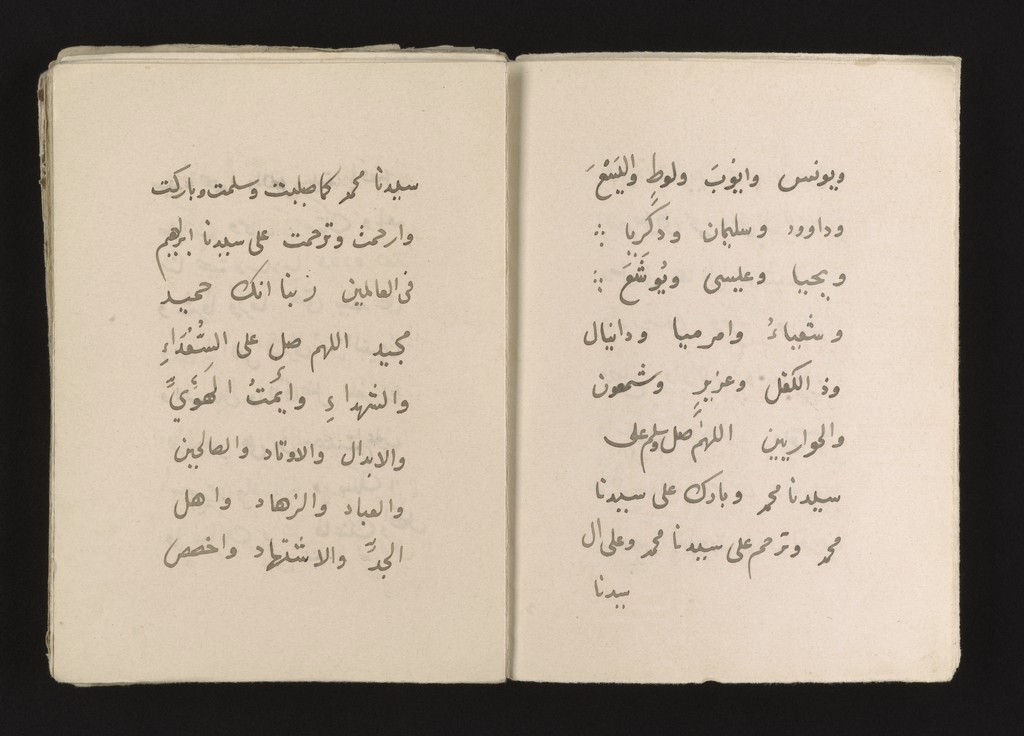 ويونس وايوبَ ولوطٍ واليَسَعَ
وداوود وسليمان وذكريا
ويحيا وعليسى ويُوشَعَ
وشعياءُ وامرميا ودانيال
وذ الكفل وعزيرٍ وشمعون
والحواريين اللهم صل وسلم على
سيدنا محمد وبارك على سيدنا
محمد وترحم على سيدنا محمد وعلى ال
سيدنا
سيدنا محمد كما صليت وسلمت وباركت
وارحمت وترحمت على سيدنا ابرهيم
فى العالمين ربنا انك حميد
مجيد اللهم صل على السُّعَدَاءِ
والشهداءِ وايَمَتُ الهَوَيِّ
والابدال والاوتاد والصالحين
والعباد والزهاد واهل
الجدَّ والاشتهاد واخصص